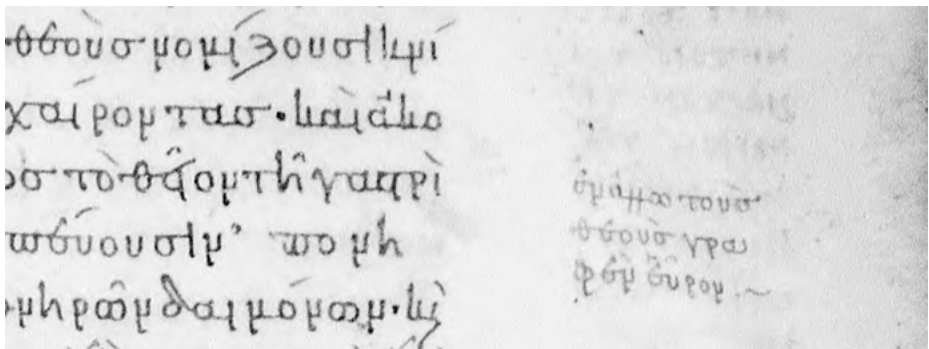 θεοὺσ νομίζουσι κνί
χαίροντασ· καὶ ἄκο
τὸ θεῖον τῆ γαστρὶ
πεύουσιν, πονη
νηρῶν δαιμόνων·
ἐν ἄλλω τοὺσ
θεοὺσ γρα
φὲν εὗρον